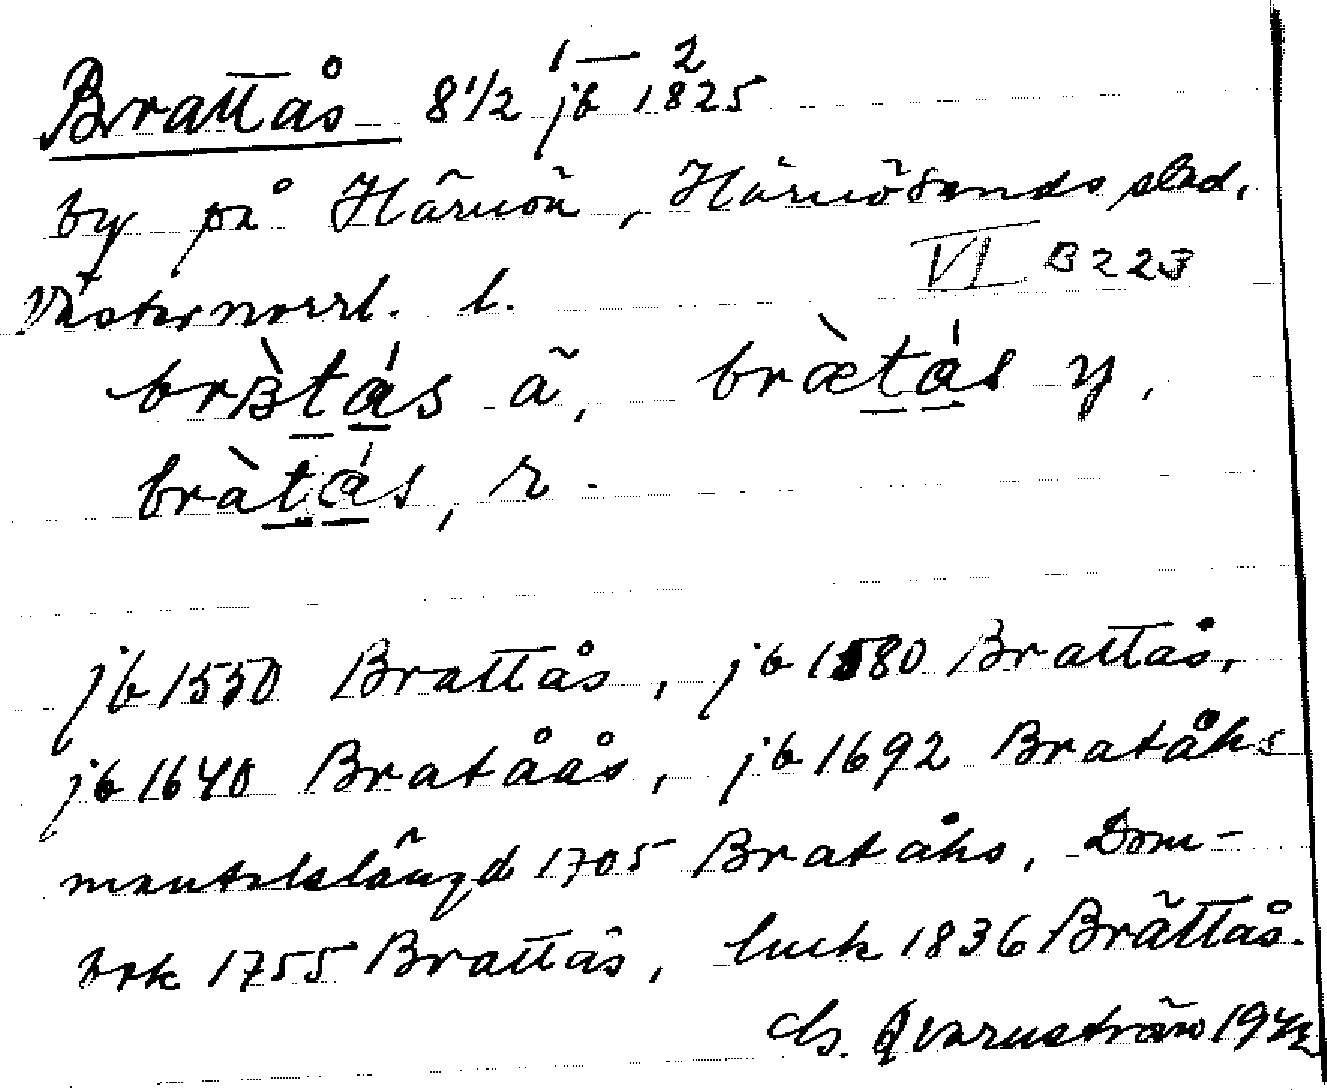 Brattås 8 1/2 jb 1825 1–2
by på Härnön, Härnösands stad,
VI B 223
Västernorrl. l.
tås ä, brætås y,
bràtás, r.
jb 1550 Brattås, jb 1580 Brattås,
jb 1640 Bratåås, jb 1692 Bratåhs
mantalslängd 1705 Bratåhs, Dom-
bok 1755 Brattås, husk 1836 Brättås.
Qvarnström 1942